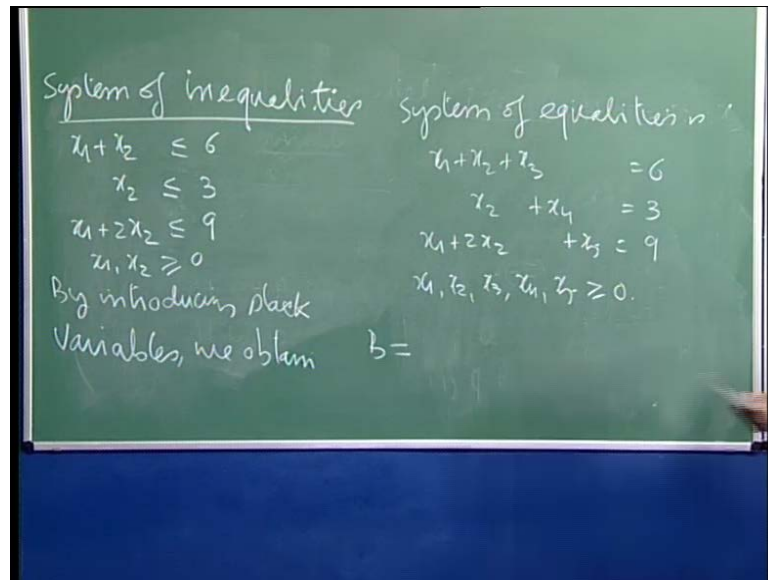 System of inequalities
x₁ + x₂ ≤ 6
x₂ ≤ 3
x₁ + 2x₂ ≤ 9
x₁, x₂ ≥ 0
By introducing slack
Variables, we obtain
System of equalities
x₁ + x₂ + x₃ = 6
x₂ + x₄ = 3
x₁ + 2x₂ + x₅ = 9
x₁, x₂, x₃, x₄, x₅ ≥ 0.
B =